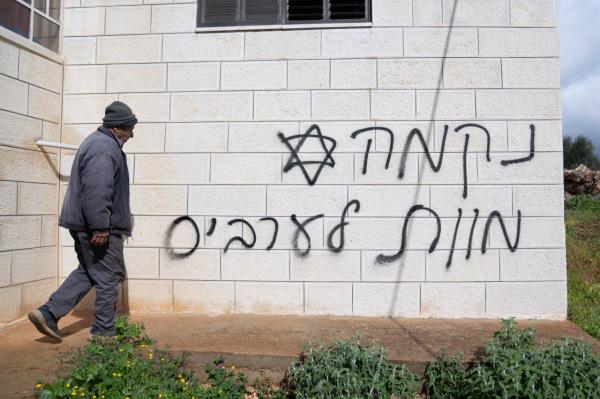 נקמה ✡
מוות לערבים